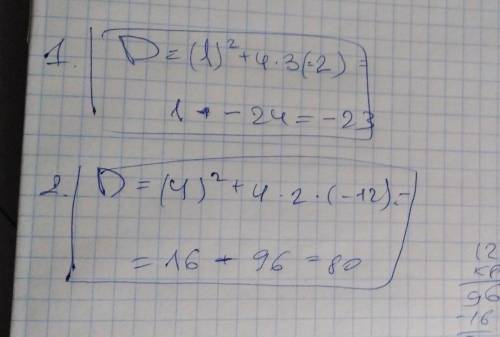 1. D = (1)² + 4 · 3(-2) =
1 + - 24 = -23
2. D = (4)² + 4 · 2 · (-12) =
= 16 + 96 = 80
12
96
-16